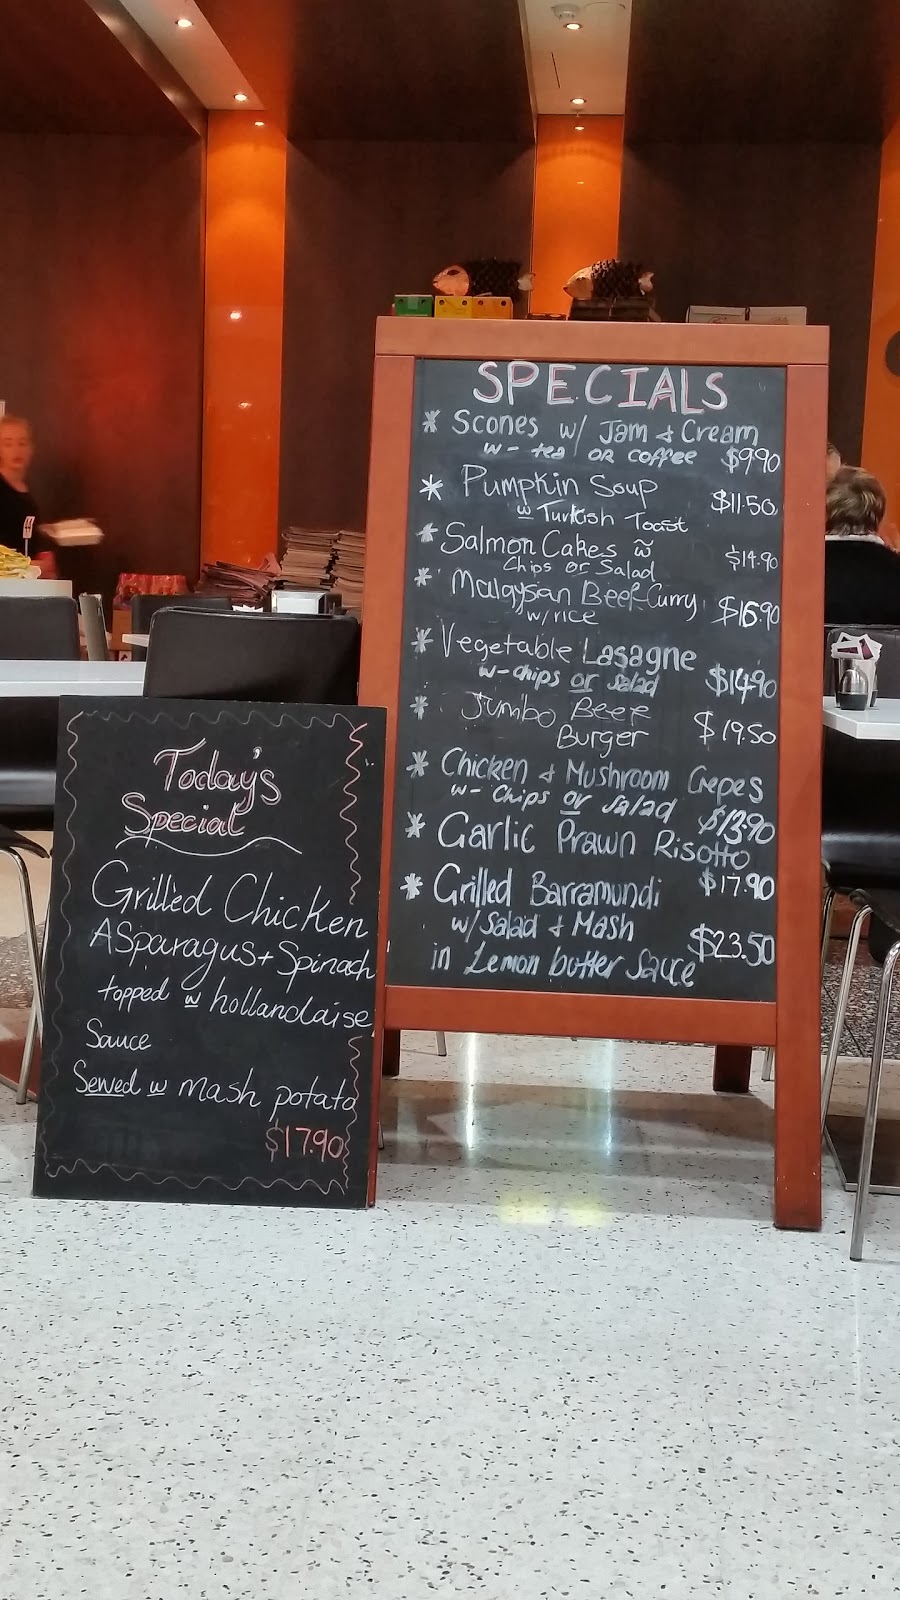 SPECIALS
* Scones w/ Jam & Cream
w- tea OR coffee $9.90
* Pumpkin Soup $11.50
w Turkish Toast
* Salmon Cakes w $14.90
Chips or Salad
* Malaysan Beef Curry $16.90
w/ rice
* Vegetable Lasagne
w- chips or salad $14.90
* Jumbo Beef $19.50
Burger
* Chicken & Mushroom Crepes
w- Chips or salad $13.90
* Garlic Prawn Risotto
$17.90
* Grilled Barramundi
w/ Salad & Mash $23.50
in Lemon butter Sauce
Today's
Special
Grilled Chicken
Asparagus + Spinach
topped w hollandaise
Sauce
Served w mash potato
$17.90